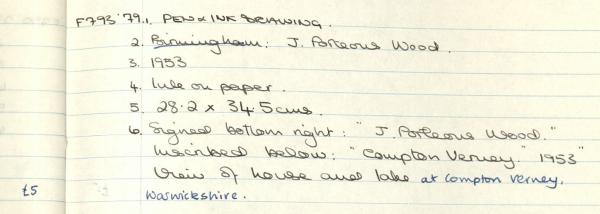 F793'79.1. PEN & INK DRAWING.
2. Birmingham: J. Porteous Wood.
3. 1953
4. Ink on paper.
5. 28.2 x 34.5cms.
6. Signed bottom right: "J. Porteous Wood."
Inscribed below: "Compton Verney." 1953"
View of house and lake at Compton Verney,
£5 Warwickshire.